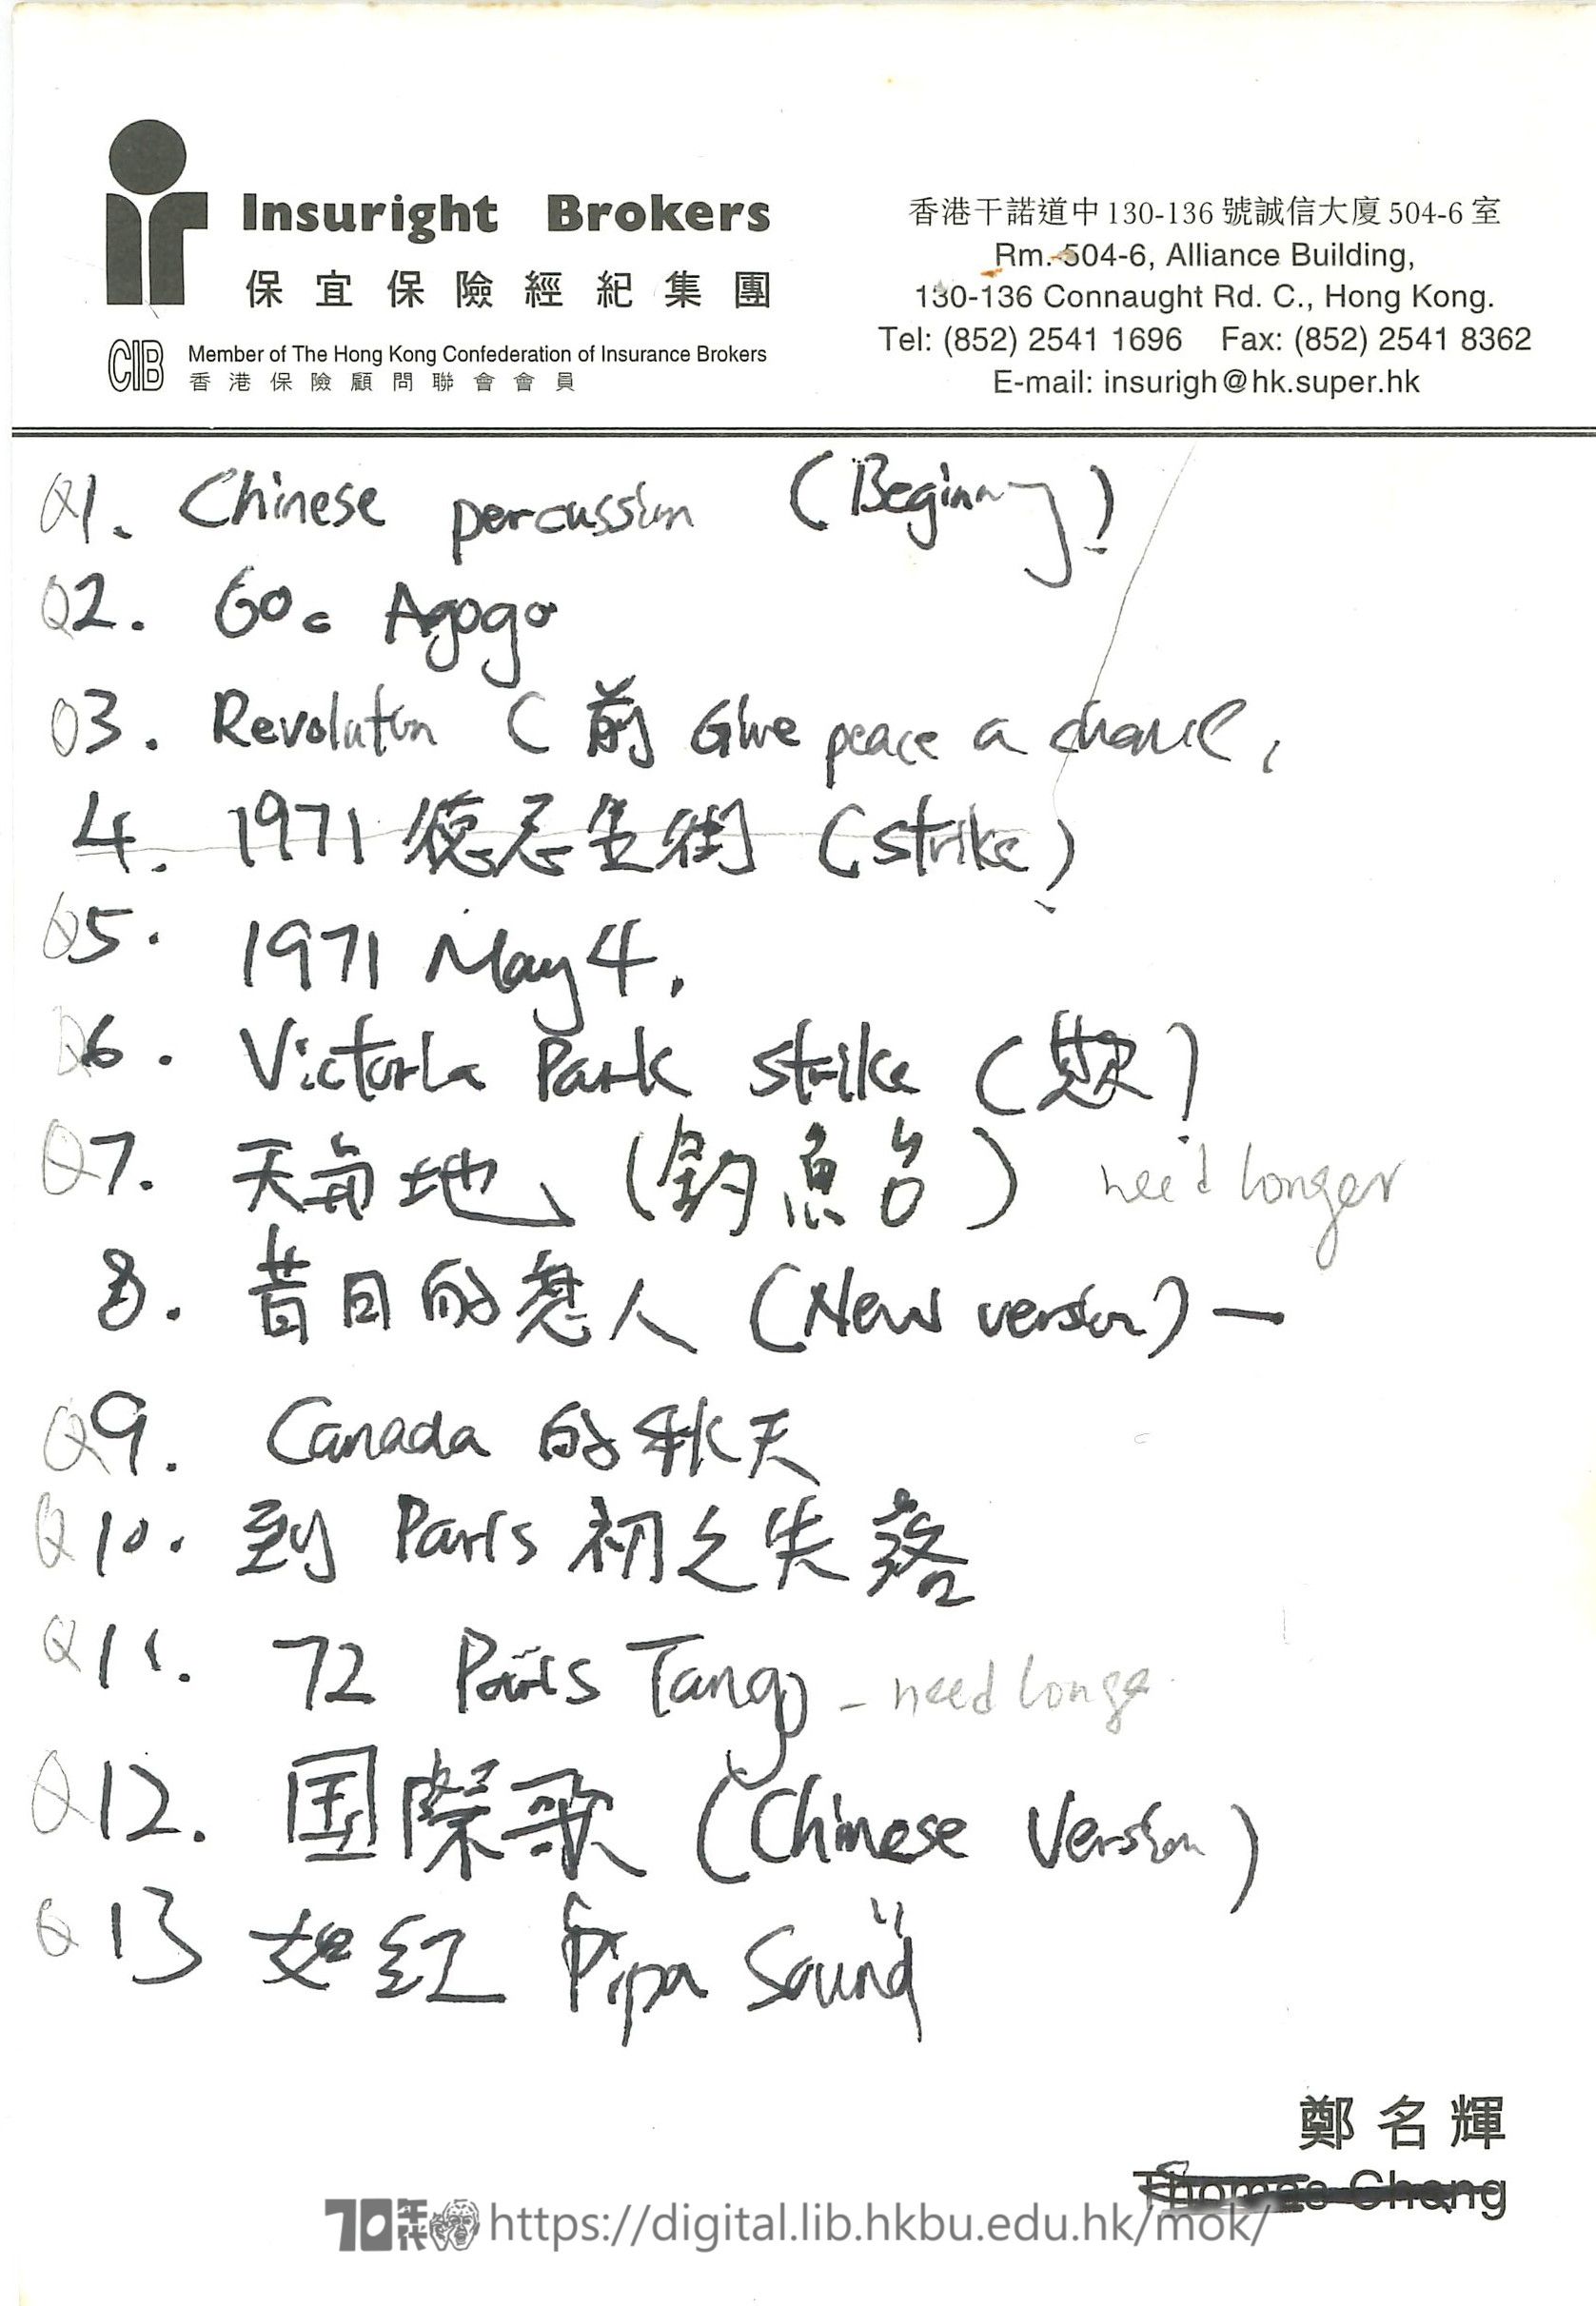 Insuright Brokers
保宜保險經紀集團
CIB Member of The Hong Kong Confederation of Insurance Brokers
香港保險顧問聯會會員
香港干諾道中130-136號誠信大廈504-6室
Rm. 504-6, Alliance Building,
130-136 Connaught Rd. C., Hong Kong.
Tel: (852) 2541 1696 Fax: (852) 2541 8362
E-mail: insurigh@hk.super.hk
Q1. Chinese percussion (Beginning)
Q2. Go. Agogo
Q3. Revolution (前 Give peace a chance,
4. 1971 德忌笠街 (strike)
Q5. 1971 May 4.
Q6. Victoria Park strike ( )
Q7. 天 地 (釣魚台) need longer
8. 昔日的戀人 (New version) —
Q9. Canada 的秋天
Q10. 到 Paris 初之失落
Q11. 72 Paris Tango - need longe
Q12. 国際歌 (Chinese Version)
Q13 如紅 "Pipa Sound"
鄭名輝
Thomas Chang
70年代 https://digital.lib.hkbu.edu.hk/mok/